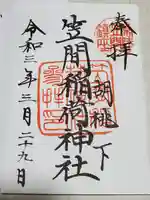 奉拝
胡桃下
笠間稲荷神社
令和三年三月二十九日